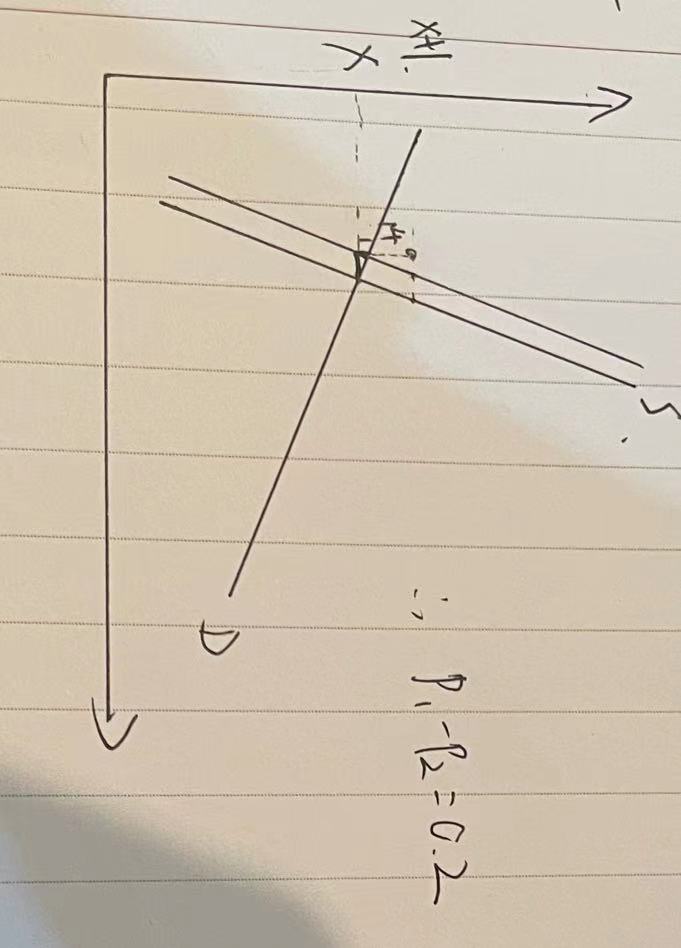 X
X+1
S
D
∴ P₁-P₂=0.2